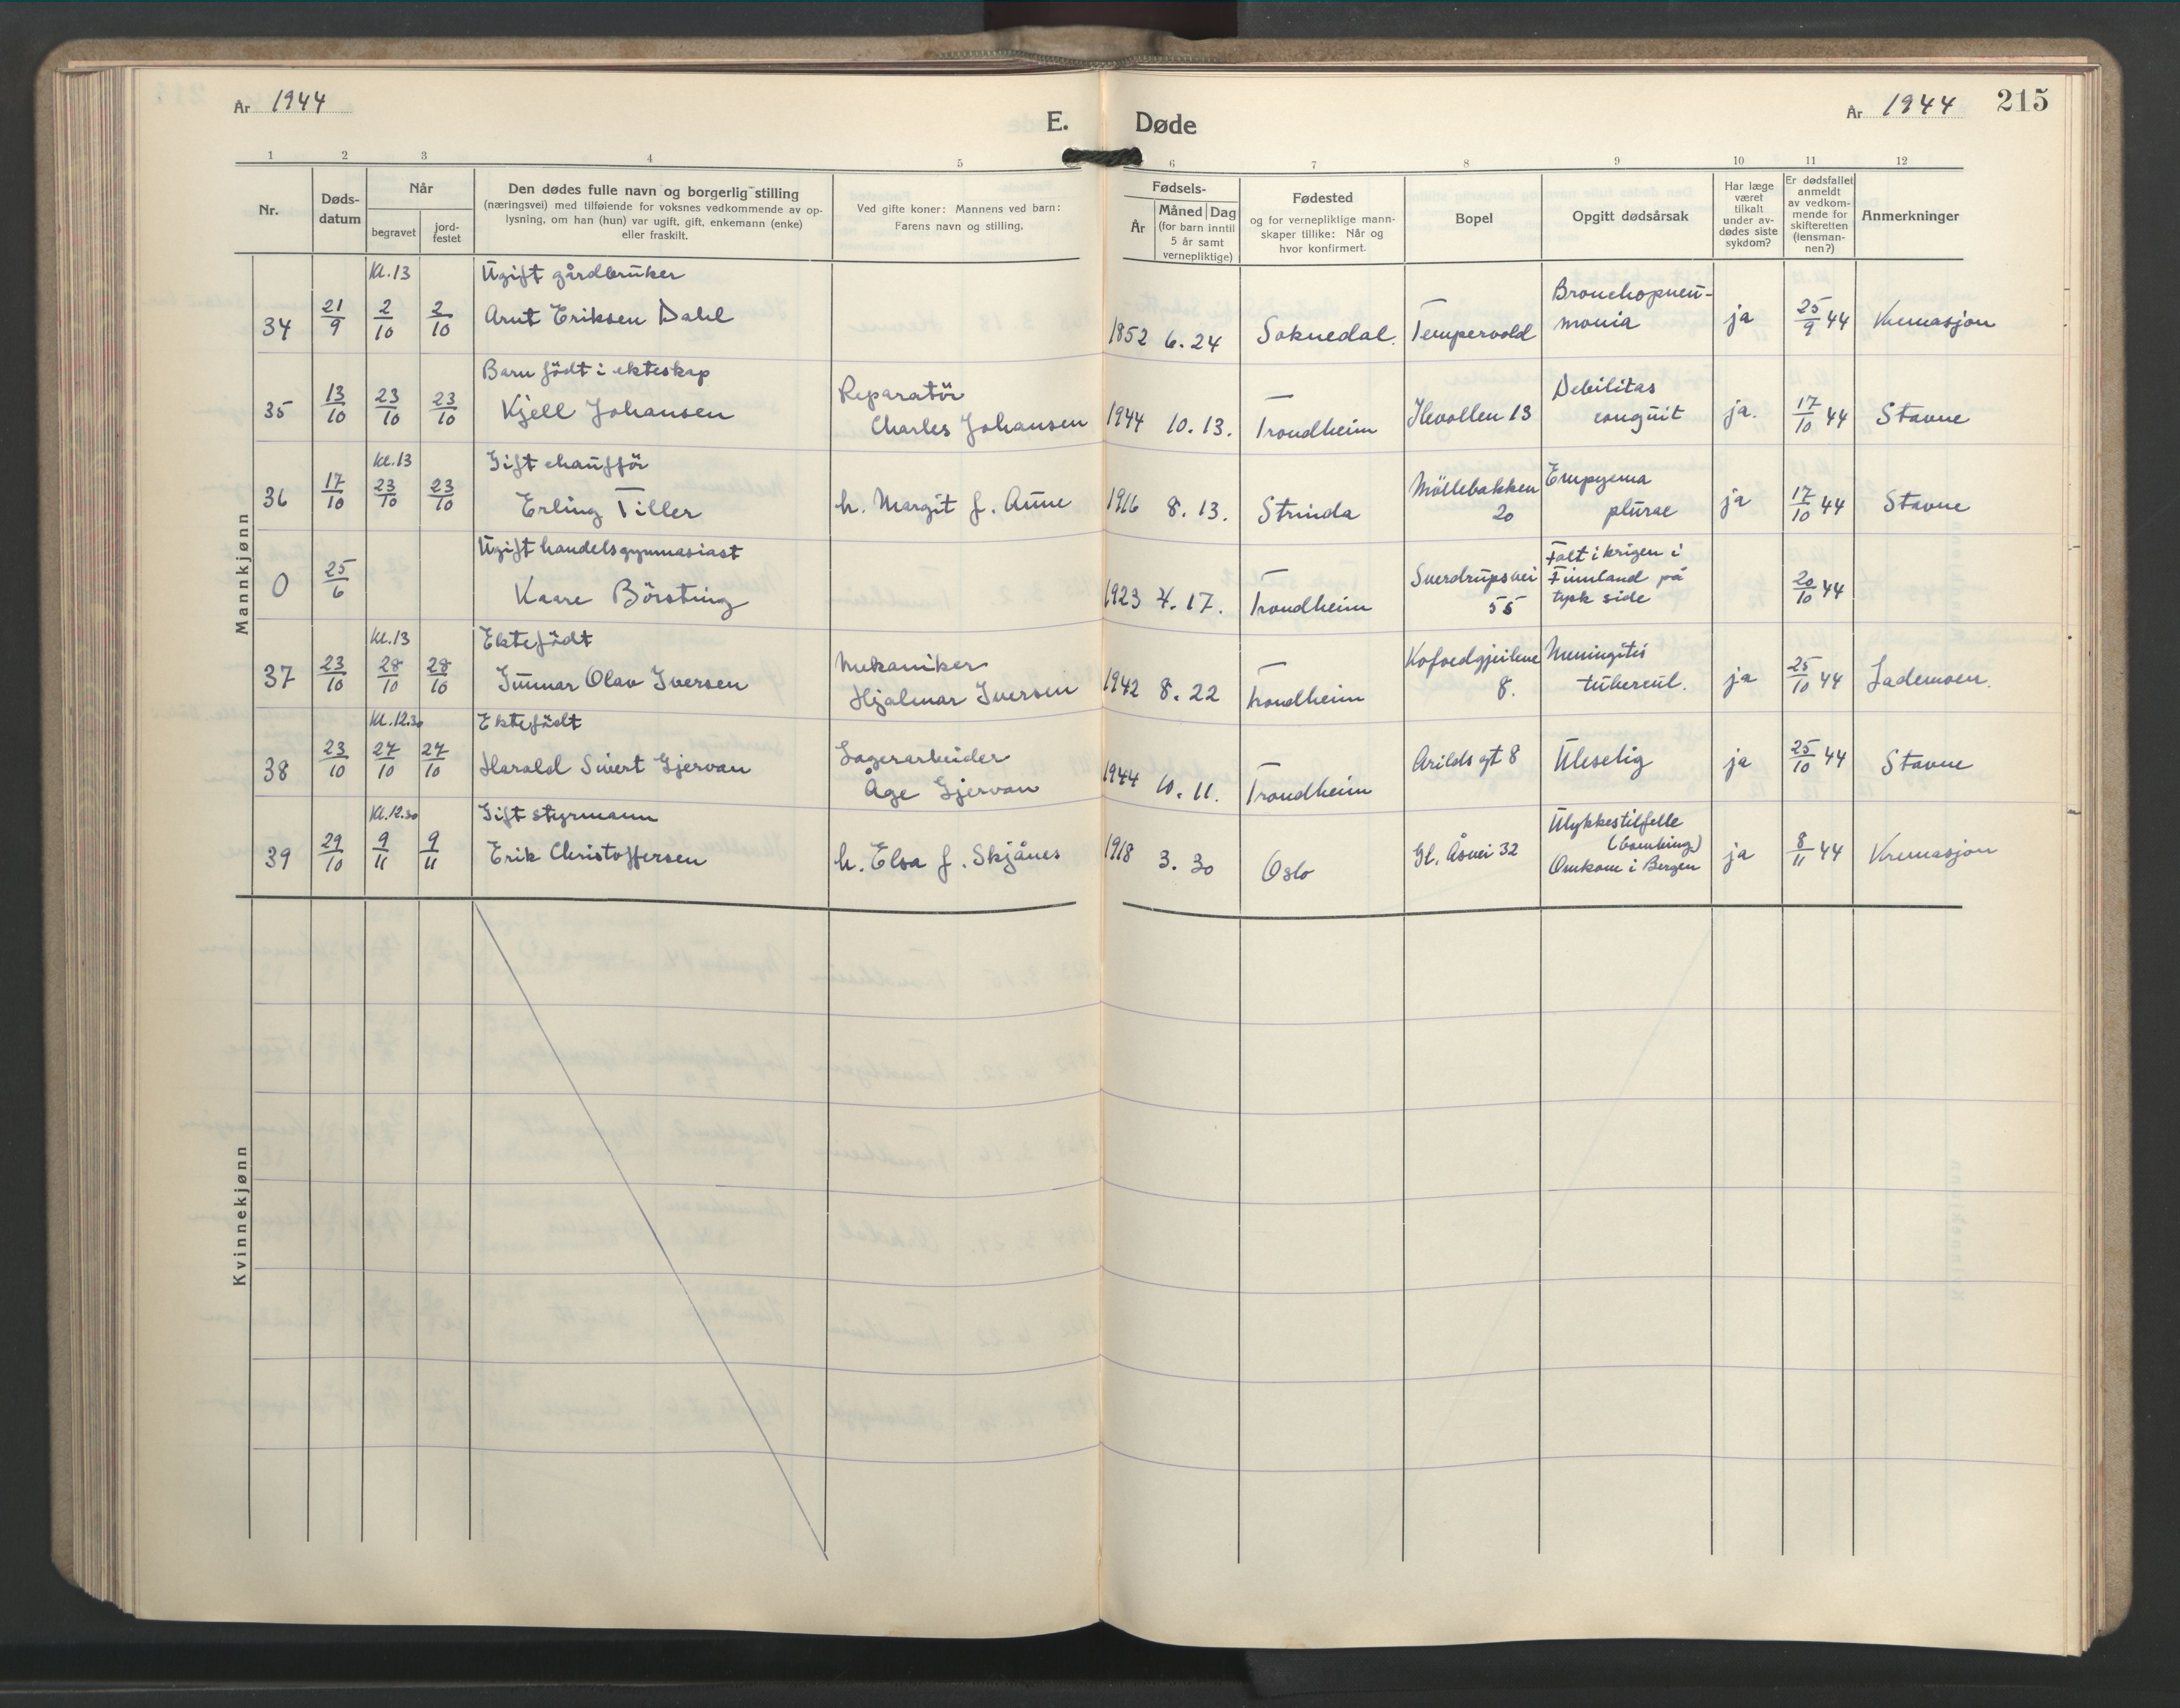 År 1944
E. Døde
År 1944 215
1 2 3 4 5 6 7 8 9 10 11 12
Nr.
Døds-
datum
Når
begravet
jord-
festet
Den dødes fulle navn og borgerlig stilling
(næringsvei) med tilføiende for voksnes vedkommende av op-
lysning, om han (hun) var ugift, gift, enkemann (enke)
eller fraskilt.
Ved gifte koner: Mannens ved barn:
Farens navn og stilling.
Fødsels-
År
Måned Dag
(for barn inntil
5 år samt
vernepliktige)
Fødested
og for vernepliktige mann-
skaper tillike: Når og
hvor konfirmert.
Bopel
Opgitt dødsårsak
Har læge
været
tilkalt
under av-
dødes siste
sykdom?
Er dødsfallet
anmeldt
av vedkom-
mende for
skifteretten
(lensman-
nen?)
Anmerkninger
Mannkjønn
Kl. 13 Ugift gårdbruker
34 21/9 2/10 2/10 Arnt Eriksen Dahl 1852 6. 24 Soknedal. Tempervold Bronchopneu-
monia ja 25/9 44 Kremasjon
Barn födt i ekteskap
35 13/10 23/10 23/10 Kjell Johansen Reparatör
Charles Johansen 1944 10. 13. Trondheim Ilevollen 13 Debilitas
congnit ja. 17/10 44 Stavne
Kl. 13 Gift chaufför
36 17/10 23/10 23/10 Erling Tiller h. Margit f. Aune 1916 8. 13. Strinda Möllebakken
20 Empyema
plurae ja 17/10 44 Stavne
Ugift handelsgymnasiast
0 25/6 Kaare Börsting 1923 4. 17. Trondheim Sverdrupsvei
55 Falt i krigen i
Finnland på
tysk side 20/10 44
Kl. 13 Ektefödt
37 23/10 28/10 28/10 Gunnar Olav Iversen Mekaniker
Hjalmar Iversen 1942 8. 22 Trondheim Kofoedgjeilene
8. Meningitis
tubercul. ja 25/10 44 Lademoen.
Kl. 12.30 Ektefödt
38 23/10 27/10 27/10 Harald Sivert Gjervan Lagerarbeider
Åge Gjervan 1944 10. 11. Trondheim Arilds gt 8 Uleselig ja 25/10 44 Stavne
Kl. 12.30 Gift styrmann
39 29/10 9/11 9/11 Erik Christoffersen h. Elsa f. Skjånes 1918 3. 30 Oslo Gl. Åsvei 32 Ulykkestilfelle
(bombing)
Omkom i Bergen ja 8/11 44 Kremasjon
Kvinnekjønn